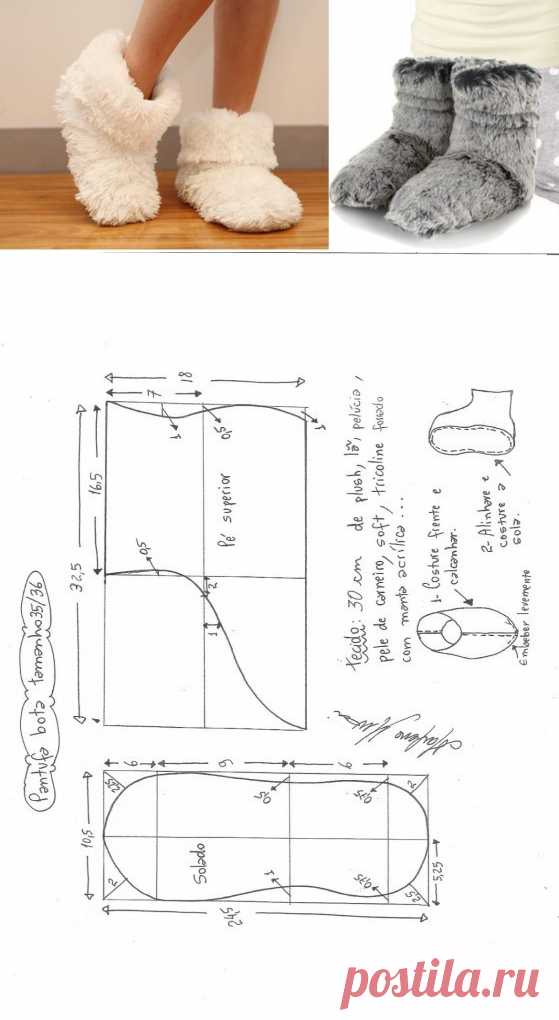 Pantufa bota tamanho 35/36
32,5
16,5
18
7
1
0,5
1
Pé superior
0,5
2
1
tecido: 30 cm de plush, lã, pelúcia,
pele de carneiro, soft, tricoline forrado
com manta acrílica...
1- Costure frente e
calcanhar.
2- Alinhave e
costure a
sola.
Embeber levemente
10,5
6
9
6
2,5
2
Solado
0,5
0,75
2
1
0,75
2,5
5,25
24,5
postila.ru